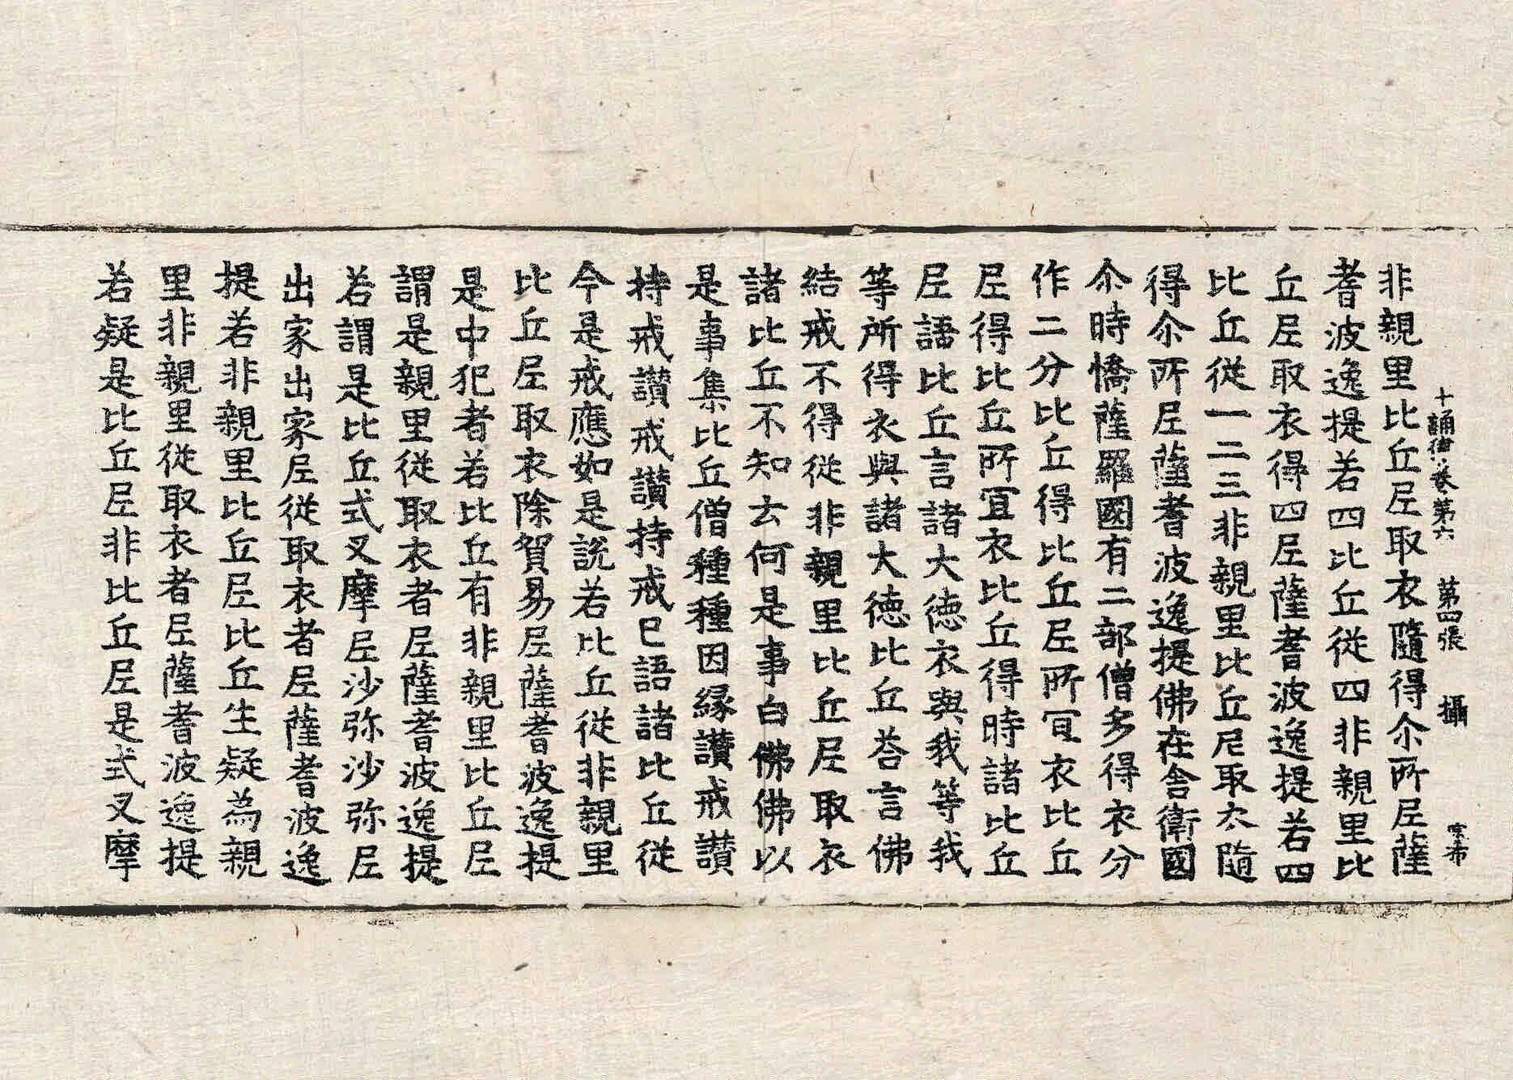 十誦律卷第六 第四張 攝
非親里比丘尼取衣隨得尒所尼薩
耆波逸提若四比丘從四非親里比
丘尼取衣得四尼薩耆波逸提若四
比丘從一二三非親里比丘尼取衣隨
得尒所尼薩耆波逸提佛在舍衛國
尒時憍薩羅國有二部僧多得衣分
作二分比丘得比丘尼所宜衣比丘
尼得比丘所宜衣比丘得時諸比丘
尼語比丘言諸大德衣與我等我
等所得衣與諸大德比丘荅言佛
結戒不得從非親里比丘尼取衣
諸比丘不知云何是事白佛佛以
是事集比丘僧種種因緣讚戒讚
持戒讚戒讚持戒已語諸比丘從
今是戒應如是說若比丘從非親里
比丘尼取衣除貿易尼薩耆波逸提
是中犯者若比丘有非親里比丘尼
謂是親里從取衣者尼薩耆波逸提
若謂是比丘式叉摩尼沙弥沙弥尼
出家出家尼從取衣者尼薩耆波逸
提若非親里比丘尼比丘生疑為親
里非親里從取衣者尼薩耆波逸提
若疑是比丘尼非比丘尼是式叉摩